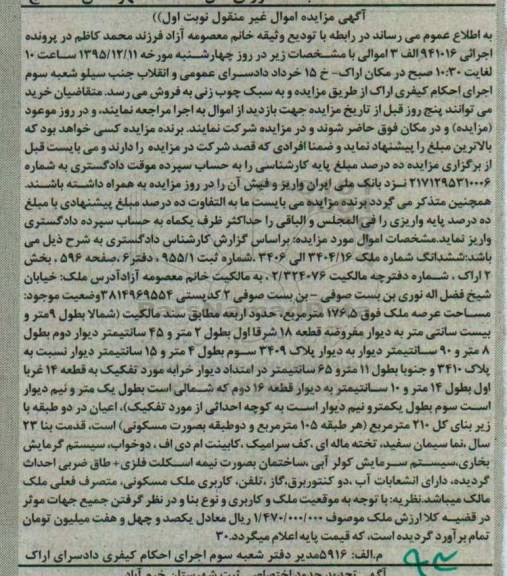 آگهی مزایده اموال غیر منقول نوبت اول))
به اطلاع عموم می رساند در رابطه با تودیع وثیقه خانم معصومه آزاد فرزند محمد کاظم در پرونده
اجرائی ۹۴۱۰۱۶ الف ۳ اموالی با مشخصات زیر در روز چهارشنبه مورخه ۱۳۹۵/۱۲/۱۱ ساعت ۱۰
لغایت ۱۰:۳۰ صبح در مکان اراک- خ ۱۵ خرداد دادسرای عمومی و انقلاب جنب سیلو شعبه سوم
اجرای احکام کیفری اراک از طریق مزایده و به سبک چوب زنی به فروش می رسد. متقاضیان خرید
می توانند پنج روز قبل از تاریخ مزایده جهت بازدید از اموال به اجرا مراجعه نمایند، و در روز موعود
(مزایده) و در مکان فوق حاضر شوند و در مزایده شرکت نمایند. برنده مزایده کسی خواهد بود که
بالاترین مبلغ را پیشنهاد نماید و ضمنا افرادی که قصد شرکت در مزایده را دارند و می بایست قبل
از برگزاری مزایده ده درصد مبلغ پایه کارشناسی را به حساب سپرده موقت دادگستری به شماره
۲۱۷۱۲۹۵۳۱۰۰۰۶ نزد بانک ملی ایران واریز و فیش آن را در روز مزایده به همراه داشته باشند.
همچنین متذکر می گردد برنده مزایده می بایست ما به التفاوت ده درصد مبلغ پیشنهادی با مبلغ
ده درصد پایه واریزی را فی المجلس و الباقی را حداکثر ظرف یکماه به حساب سپرده دادگستری
واریز نماید.مشخصات اموال مورد مزایده: براساس گزارش کارشناس دادگستری به شرح ذیل می
باشد:ششدانگ شماره ملک ۳۴۰۴/۱۶ الی ۳۴۰۶ .شماره ثبت ۹۵۵/۱ ، دفتر۶ ،صفحه ۵۹۶ ، بخش
۲ اراک ، شماره دفترچه مالکیت ۲/۳۲۴۰۷۶ ، به مالکیت خانم معصومه آزادآدرس ملک: خیابان
شیخ فضل اله نوری بن بست صوفی - بن بست صوفی ۲ کدپستی ۳۸۱۴۹۶۹۵۵۴وضعیت موجود:
مساحت عرصه ملک فوق ۱۷۶.۵ مترمربع، حدود اربعه مطابق سند مالکیت (شمالا بطول ۹متر و
بیست سانتی متر به دیوار مفروضه قطعه ۱۸ شرقا اول بطول ۲ متر و ۴۵ سانتیمتر دیوار دوم بطول
۸ متر و ۹۰ سانتیمتر دیوار به دیوار پلاک ۳۴۰۹ سوم بطول ۴ متر و ۱۵ سانتیمتر دیوار نسبت به
پلاک ۳۴۱۰ و جنوبا بطول ۱۱ مترو ۶۵ سانتیمتر در امتداد دیوار خرابه مورد تفکیک به قطعه ۱۴ غربا
اول بطول ۱۴ متر و ۱۰ سانتیمتر به دیوار قطعه ۱۶ دوم که شمالی است بطول یک متر و نیم دیوار
است سوم بطول یکمترو نیم دیوار است به کوچه احداثی از مورد تفکیک)، اعیان در دو طبقه با
زیر بنای کل ۲۱۰ مترمربع (هر طبقه ۱۰۵ مترمربع و دوطبقه بصورت مسکونی) است، قدمت بنا ۲۳
سال ،نما سیمان سفید، تخته ماله ای ،کف سرامیک ،کابینت ام دی اف ، دوخواب، سیستم گرمایش
بخاری،سیستم سرمایش کولر آبی ،ساختمان بصورت نیمه اسکلت فلزی+ طاق ضربی احداث
گردیده، دارای انشعابات آب ،دو کنتوربرق،گاز ،تلفن، کاربری ملک مسکونی، متصرف فعلی ملک
مالک میباشد.نظریه: با توجه به موقعیت ملک و کاربری و نوع بنا و در نظر گرفتن جمیع جهات موثر
در قضیه کلا ارزش ملک موصوف ۱/۴۷۰/۰۰۰/۰۰۰ ریال معادل یکصد و چهل و هفت میلیون تومان
تمام برآورد گردیده است، که قیمت پایه اعلام میگردد.۳۰
م.الف: ۵۹۱۶مدیر دفتر شعبه سوم اجرای احکام کیفری دادسرای اراک